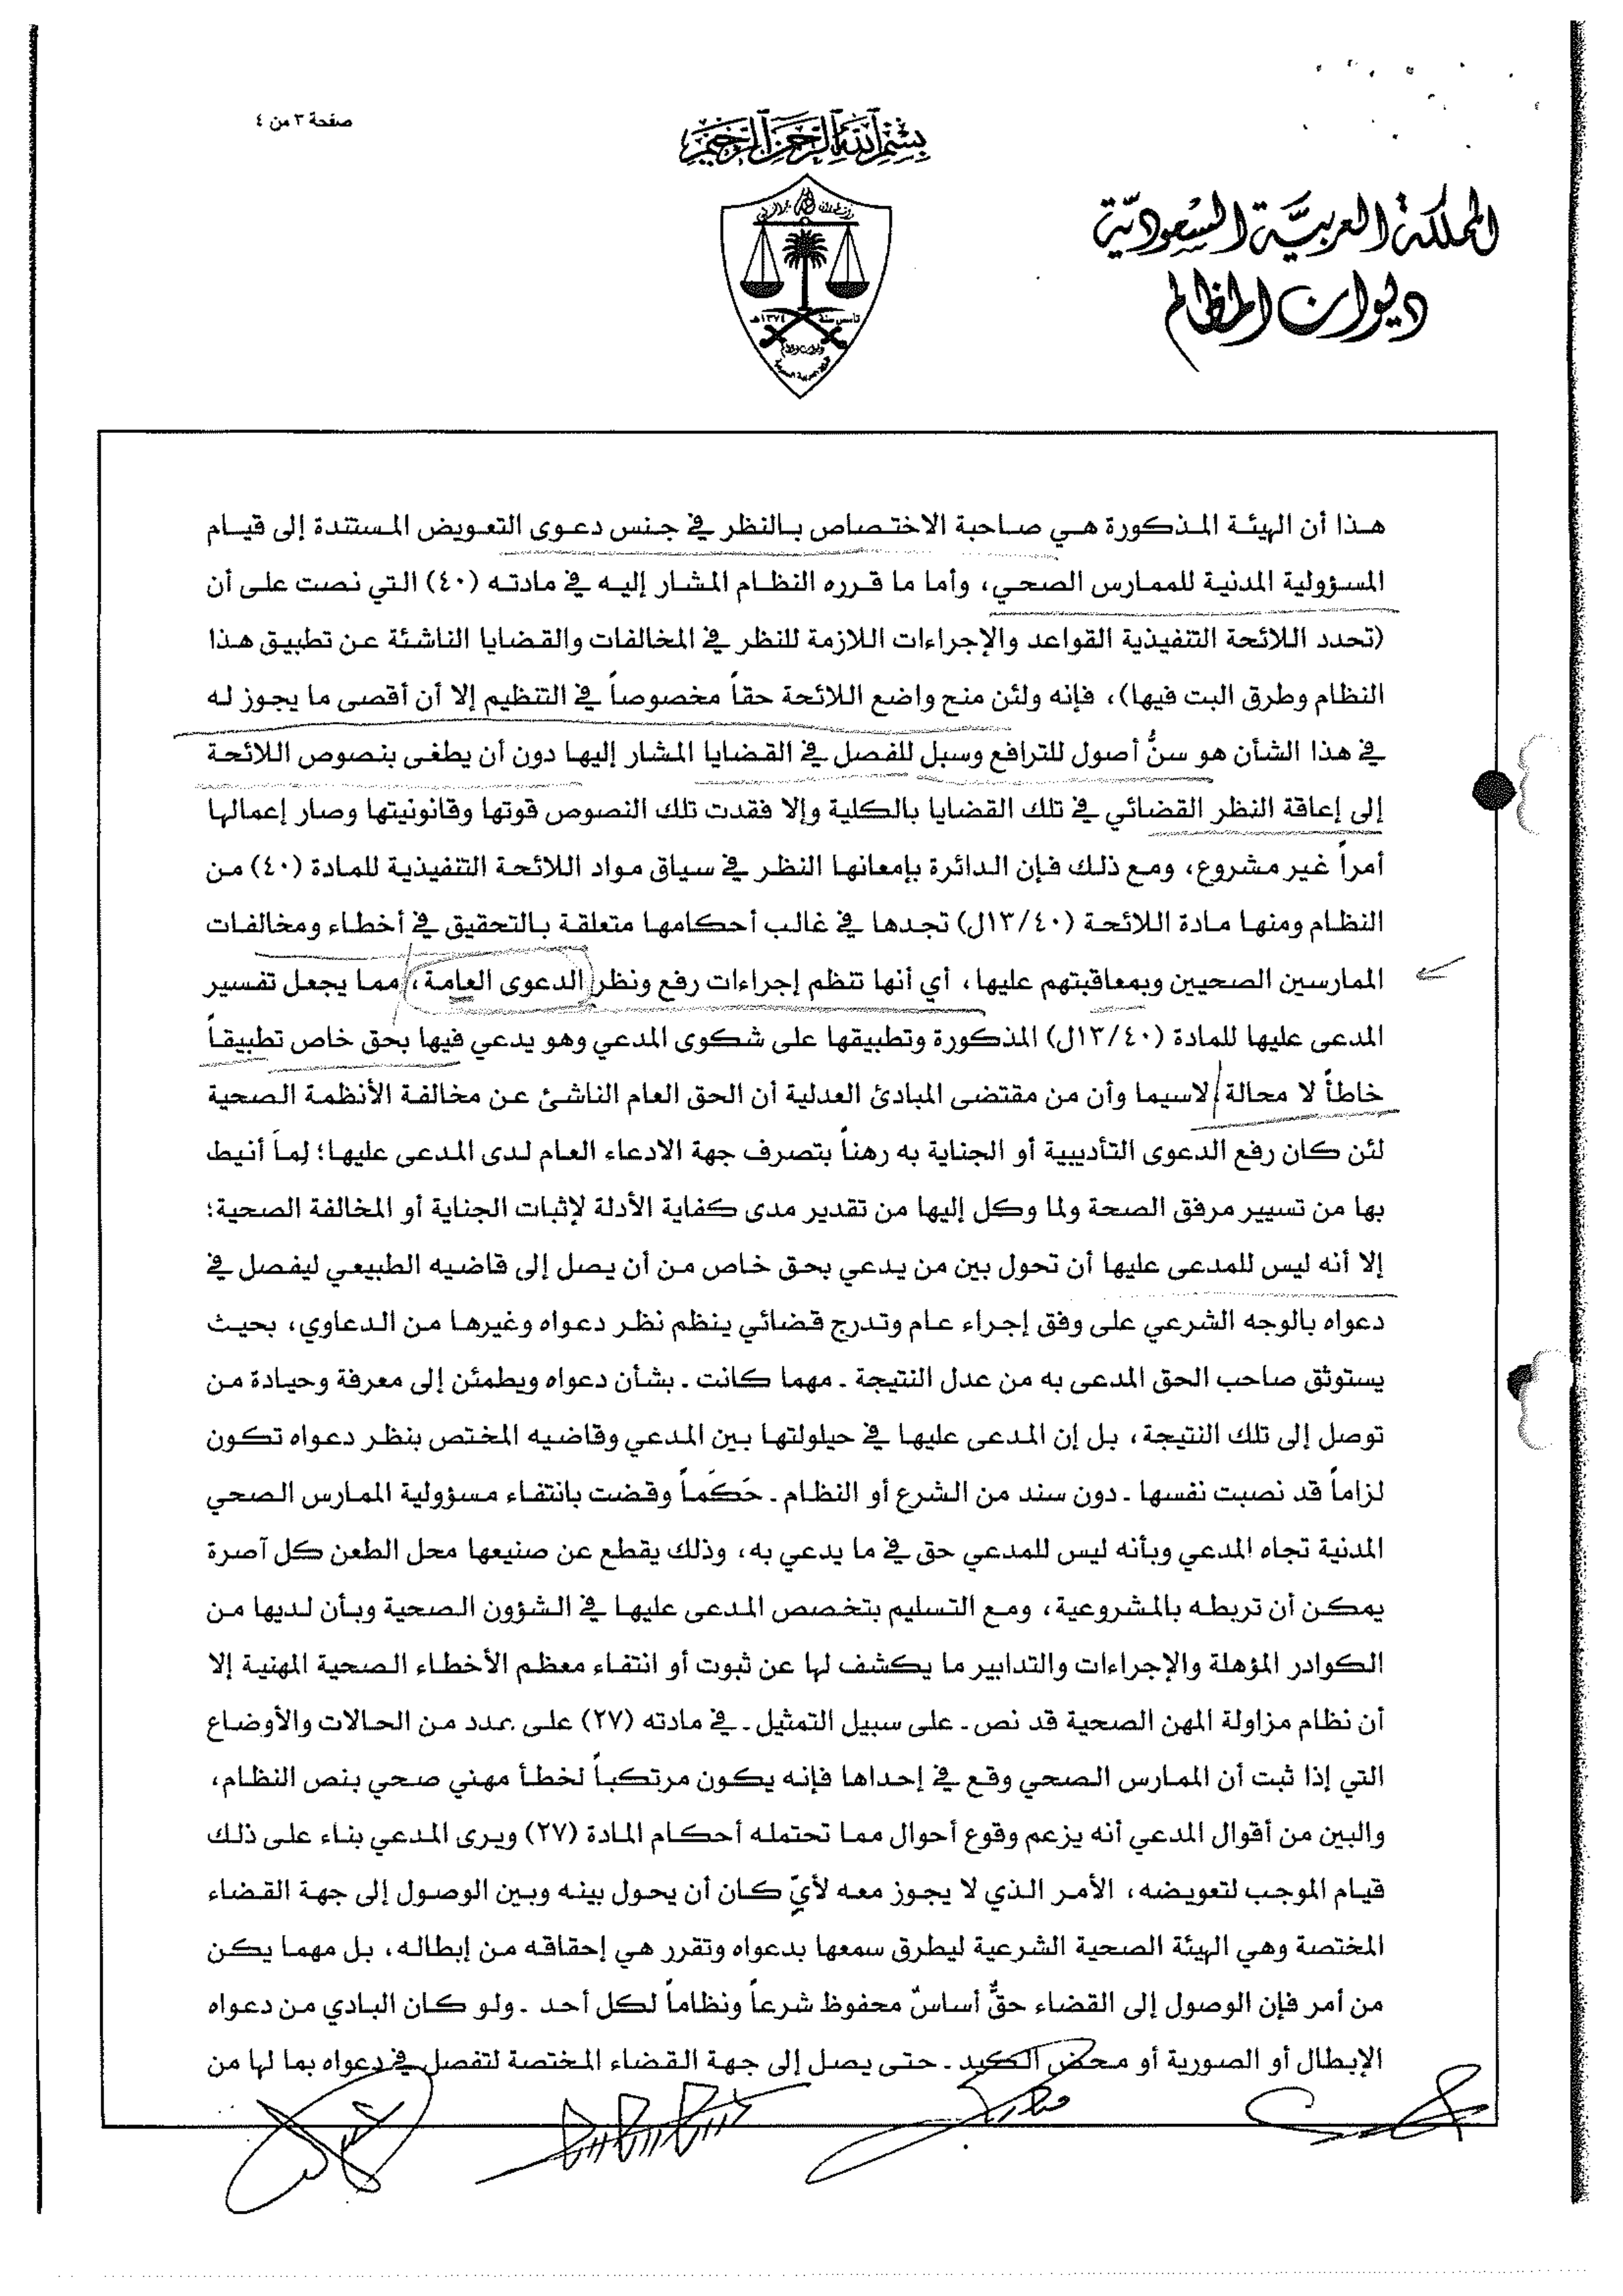 صفحة ٣ من ٤
بسم الله الرحمن الرحيم
المملكة العربية السعودية
ديوان المظالم
تأسس سنة ١٣٧٤هـ
هذا أن الهيئة المذكورة هي صاحبة الاختصاص بالنظر في جنس دعوى التعويض المستندة إلى قيام
المسؤولية المدنية للممارس الصحي، وأما ما قرره النظام المشار إليه في مادته (٤٠) التي نصت على أن
(تحدد اللائحة التنفيذية القواعد والإجراءات اللازمة للنظر في المخالفات والقضايا الناشئة عن تطبيق هذا
النظام وطرق البت فيها)، فإنه ولئن منح واضع اللائحة حقاً مخصوصاً في التنظيم إلا أن أقصى ما يجوز له
في هذا الشأن هو سنُّ أصول للترافع وسبل للفصل في القضايا المشار إليها دون أن يطغى بنصوص اللائحة
إلى إعاقة النظر القضائي في تلك القضايا بالكلية وإلا فقدت تلك النصوص قوتها وقانونيتها وصار إعمالها
أمراً غير مشروع، ومع ذلك فإن الدائرة بإمعانها النظر في سياق مواد اللائحة التنفيذية للمادة (٤٠) من
النظام ومنها مادة اللائحة (١٣/٤٠ل) تجدها في غالب أحكامها متعلقة بالتحقيق في أخطاء ومخالفات
الممارسين الصحيين وبمعاقبتهم عليها، أي أنها تنظم إجراءات رفع ونظر الدعوى العامة، مما يجعل تفسير
المدعى عليها للمادة (١٣/٤٠ل) المذكورة وتطبيقها على شكوى المدعي وهو يدعي فيها بحق خاص تطبيقاً
خاطأً لا محالة لاسيما وأن من مقتضى المبادئ العدلية أن الحق العام الناشئ عن مخالفة الأنظمة الصحية
لئن كان رفع الدعوى التأديبية أو الجناية به رهناً بتصرف جهة الادعاء العام لدى المدعى عليها؛ لِماَ أنيط
بها من تسيير مرفق الصحة ولما وكل إليها من تقدير مدى كفاية الأدلة لإثبات الجناية أو المخالفة الصحية؛
إلا أنه ليس للمدعى عليها أن تحول بين من يدعي بحق خاص من أن يصل إلى قاضيه الطبيعي ليفصل في
دعواه بالوجه الشرعي على وفق إجراء عام وتدرج قضائي ينظم نظر دعواه وغيرها من الدعاوي، بحيث
يستوثق صاحب الحق المدعى به من عدل النتيجة ـ مهما كانت ـ بشأن دعواه ويطمئن إلى معرفة وحيادة من
توصل إلى تلك النتيجة، بل إن المدعى عليها في حيلولتها بين المدعي وقاضيه المختص بنظر دعواه تكون
لزاماً قد نصبت نفسها ـ دون سند من الشرع أو النظام ـ حَكَماً وقضت بانتفاء مسؤولية الممارس الصحي
المدنية تجاه المدعي وبأنه ليس للمدعي حق في ما يدعي به، وذلك يقطع عن صنيعها محل الطعن كل آصرة
يمكن أن تربطه بالمشروعية، ومع التسليم بتخصص المدعى عليها في الشؤون الصحية وبأن لديها من
الكوادر المؤهلة والإجراءات والتدابير ما يكشف لها عن ثبوت أو انتفاء معظم الأخطاء الصحية المهنية إلا
أن نظام مزاولة المهن الصحية قد نص ـ على سبيل التمثيل ـ في مادته (٢٧) على عدد من الحالات والأوضاع
التي إذا ثبت أن الممارس الصحي وقع في إحداها فإنه يكون مرتكباً لخطأ مهني صحي بنص النظام،
والبين من أقوال المدعي أنه يزعم وقوع أحوال مما تحتمله أحكام المادة (٢٧) ويرى المدعي بناء على ذلك
قيام الموجب لتعويضه، الأمر الذي لا يجوز معه لأيِّ كان أن يحول بينه وبين الوصول إلى جهة القضاء
المختصة وهي الهيئة الصحية الشرعية ليطرق سمعها بدعواه وتقرر هي إحقاقه من إبطاله، بل مهما يكن
من أمر فإن الوصول إلى القضاء حقٌّ أساسٌ محفوظ شرعاً ونظاماً لكل أحد ـ ولو كان البادي من دعواه
الإبطال أو الصورية أو محض الكيد ـ حتى يصل إلى جهة القضاء المختصة لتفصل في دعواه بما لها من